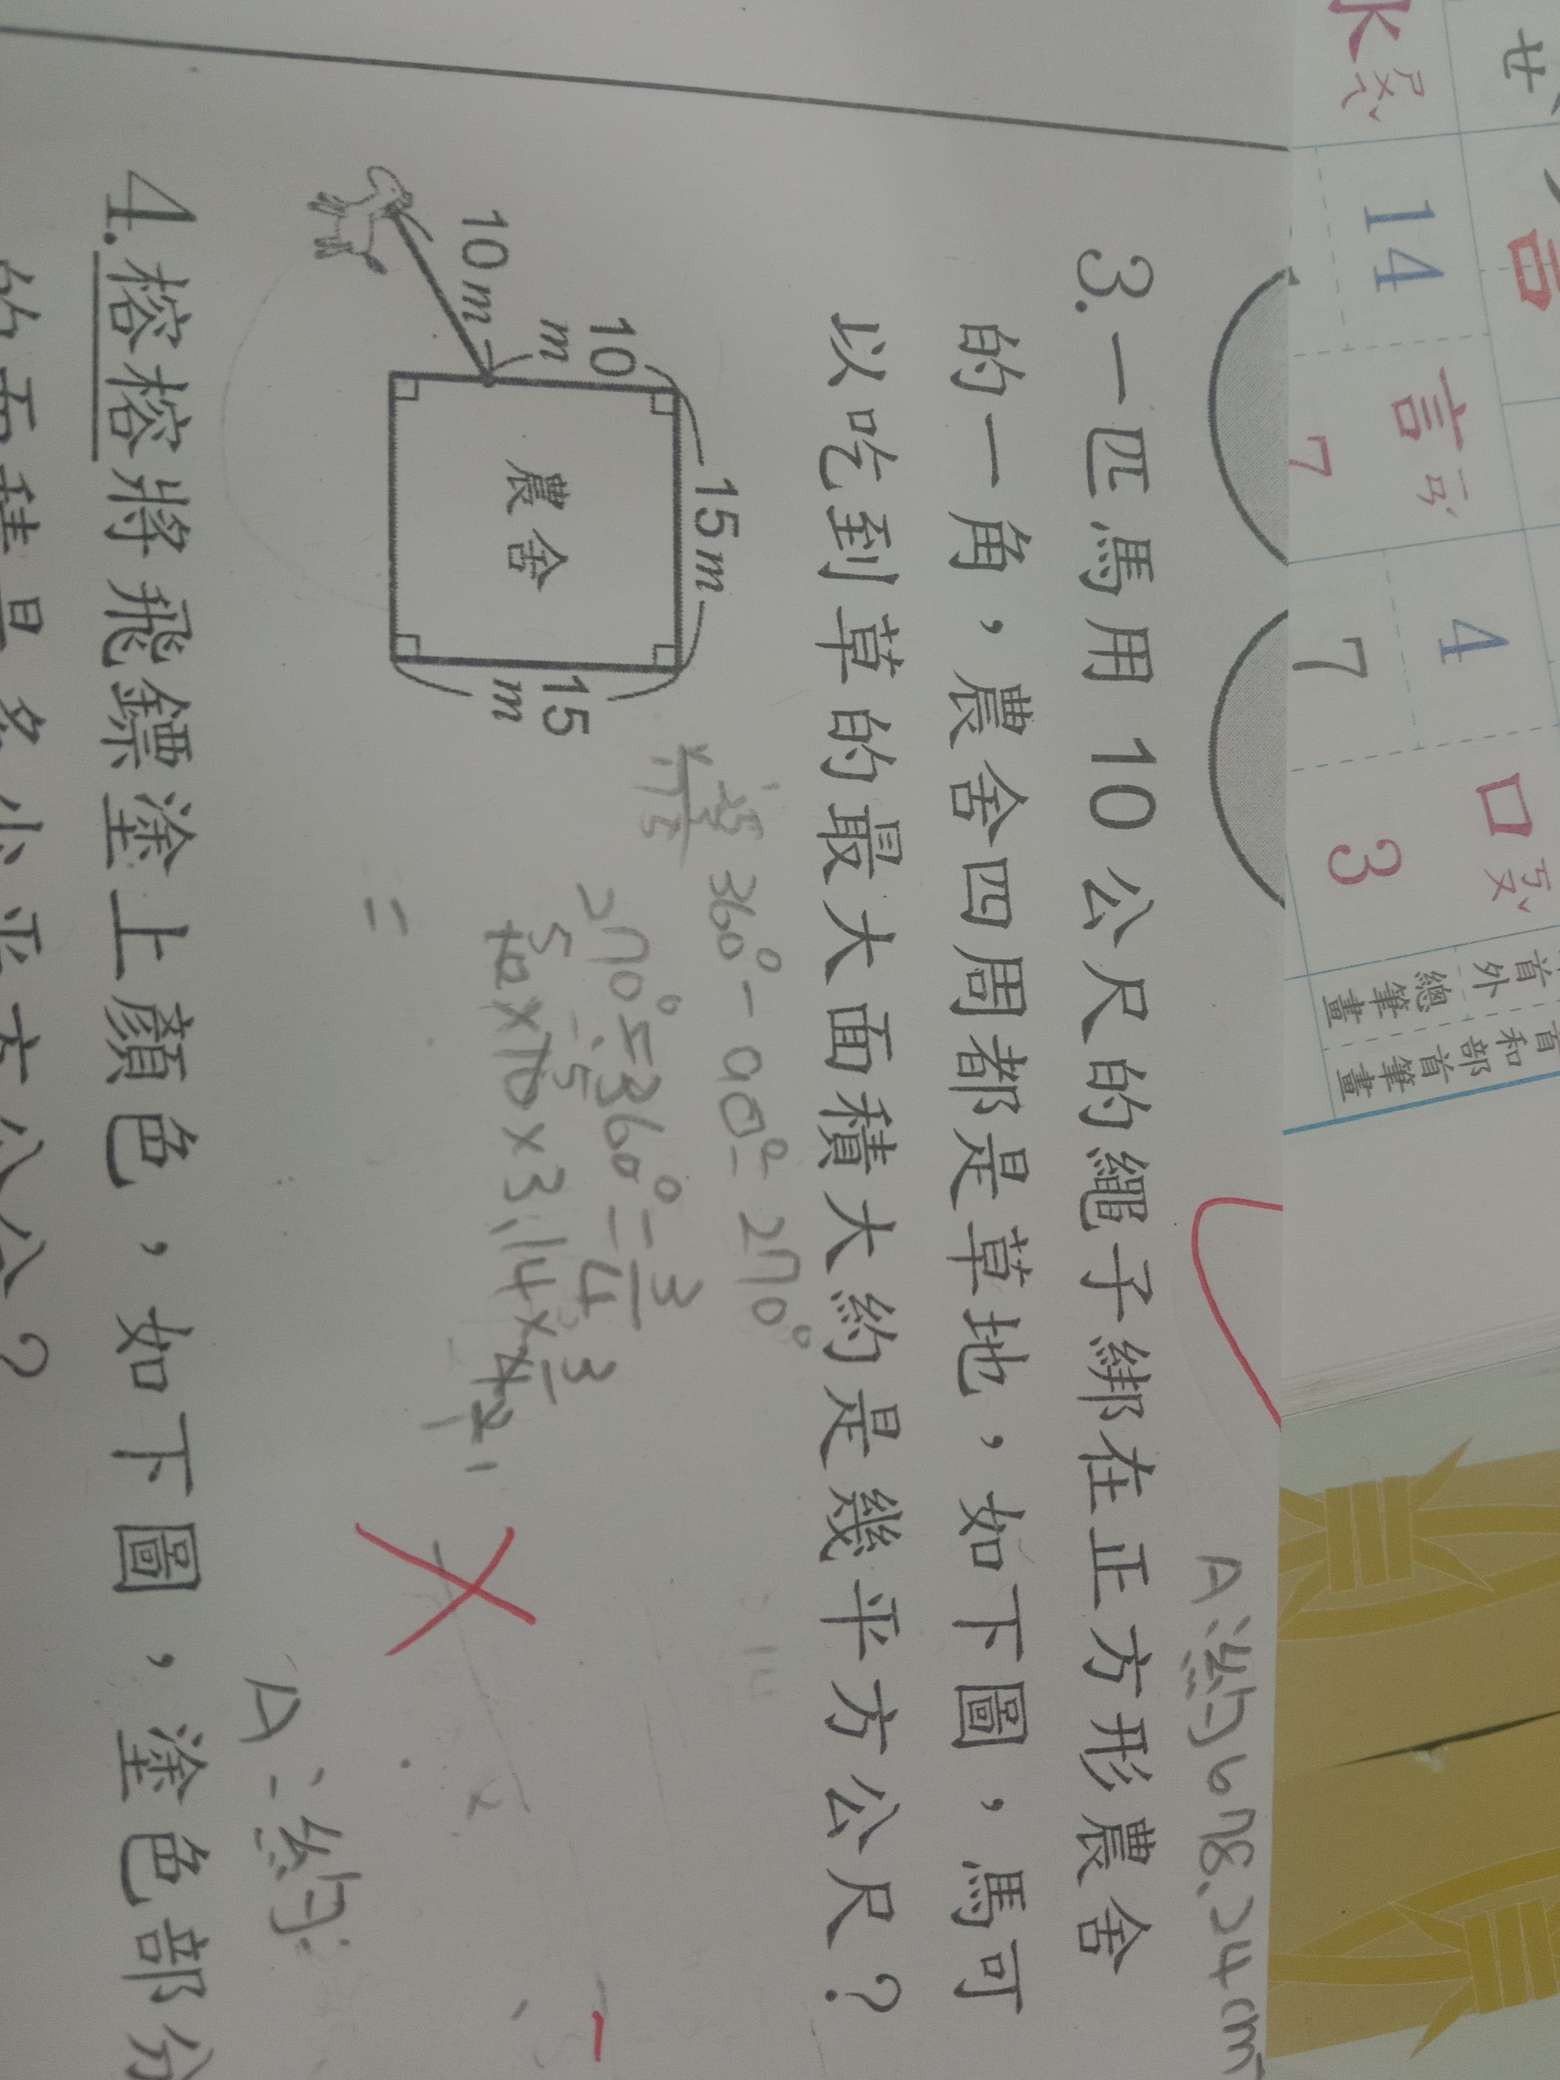 水 ㄕㄨㄟˇ
14 言 ㄧㄢˊ 4 口 ㄎㄡˇ
7 7 3
言
總筆畫
A：約678.24cm²
3.一匹馬用 10 公尺的繩子綁在正方形農舍
的一角，農舍四周都是草地，如下圖，馬可
以吃到草的最大面積大約是幾平方公尺？
15m
10m
10m
農舍
15m
360°-90°=270°
270°÷360°=3/4
10×10×3.14×3/4
=
A：約
4.榕榕將飛鏢塗上顏色，如下圖，塗色部分
的面積是多少平方公分？